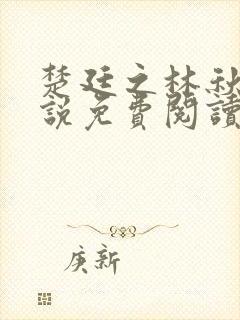 楚廷之林秋
說免費閱讀
庚新